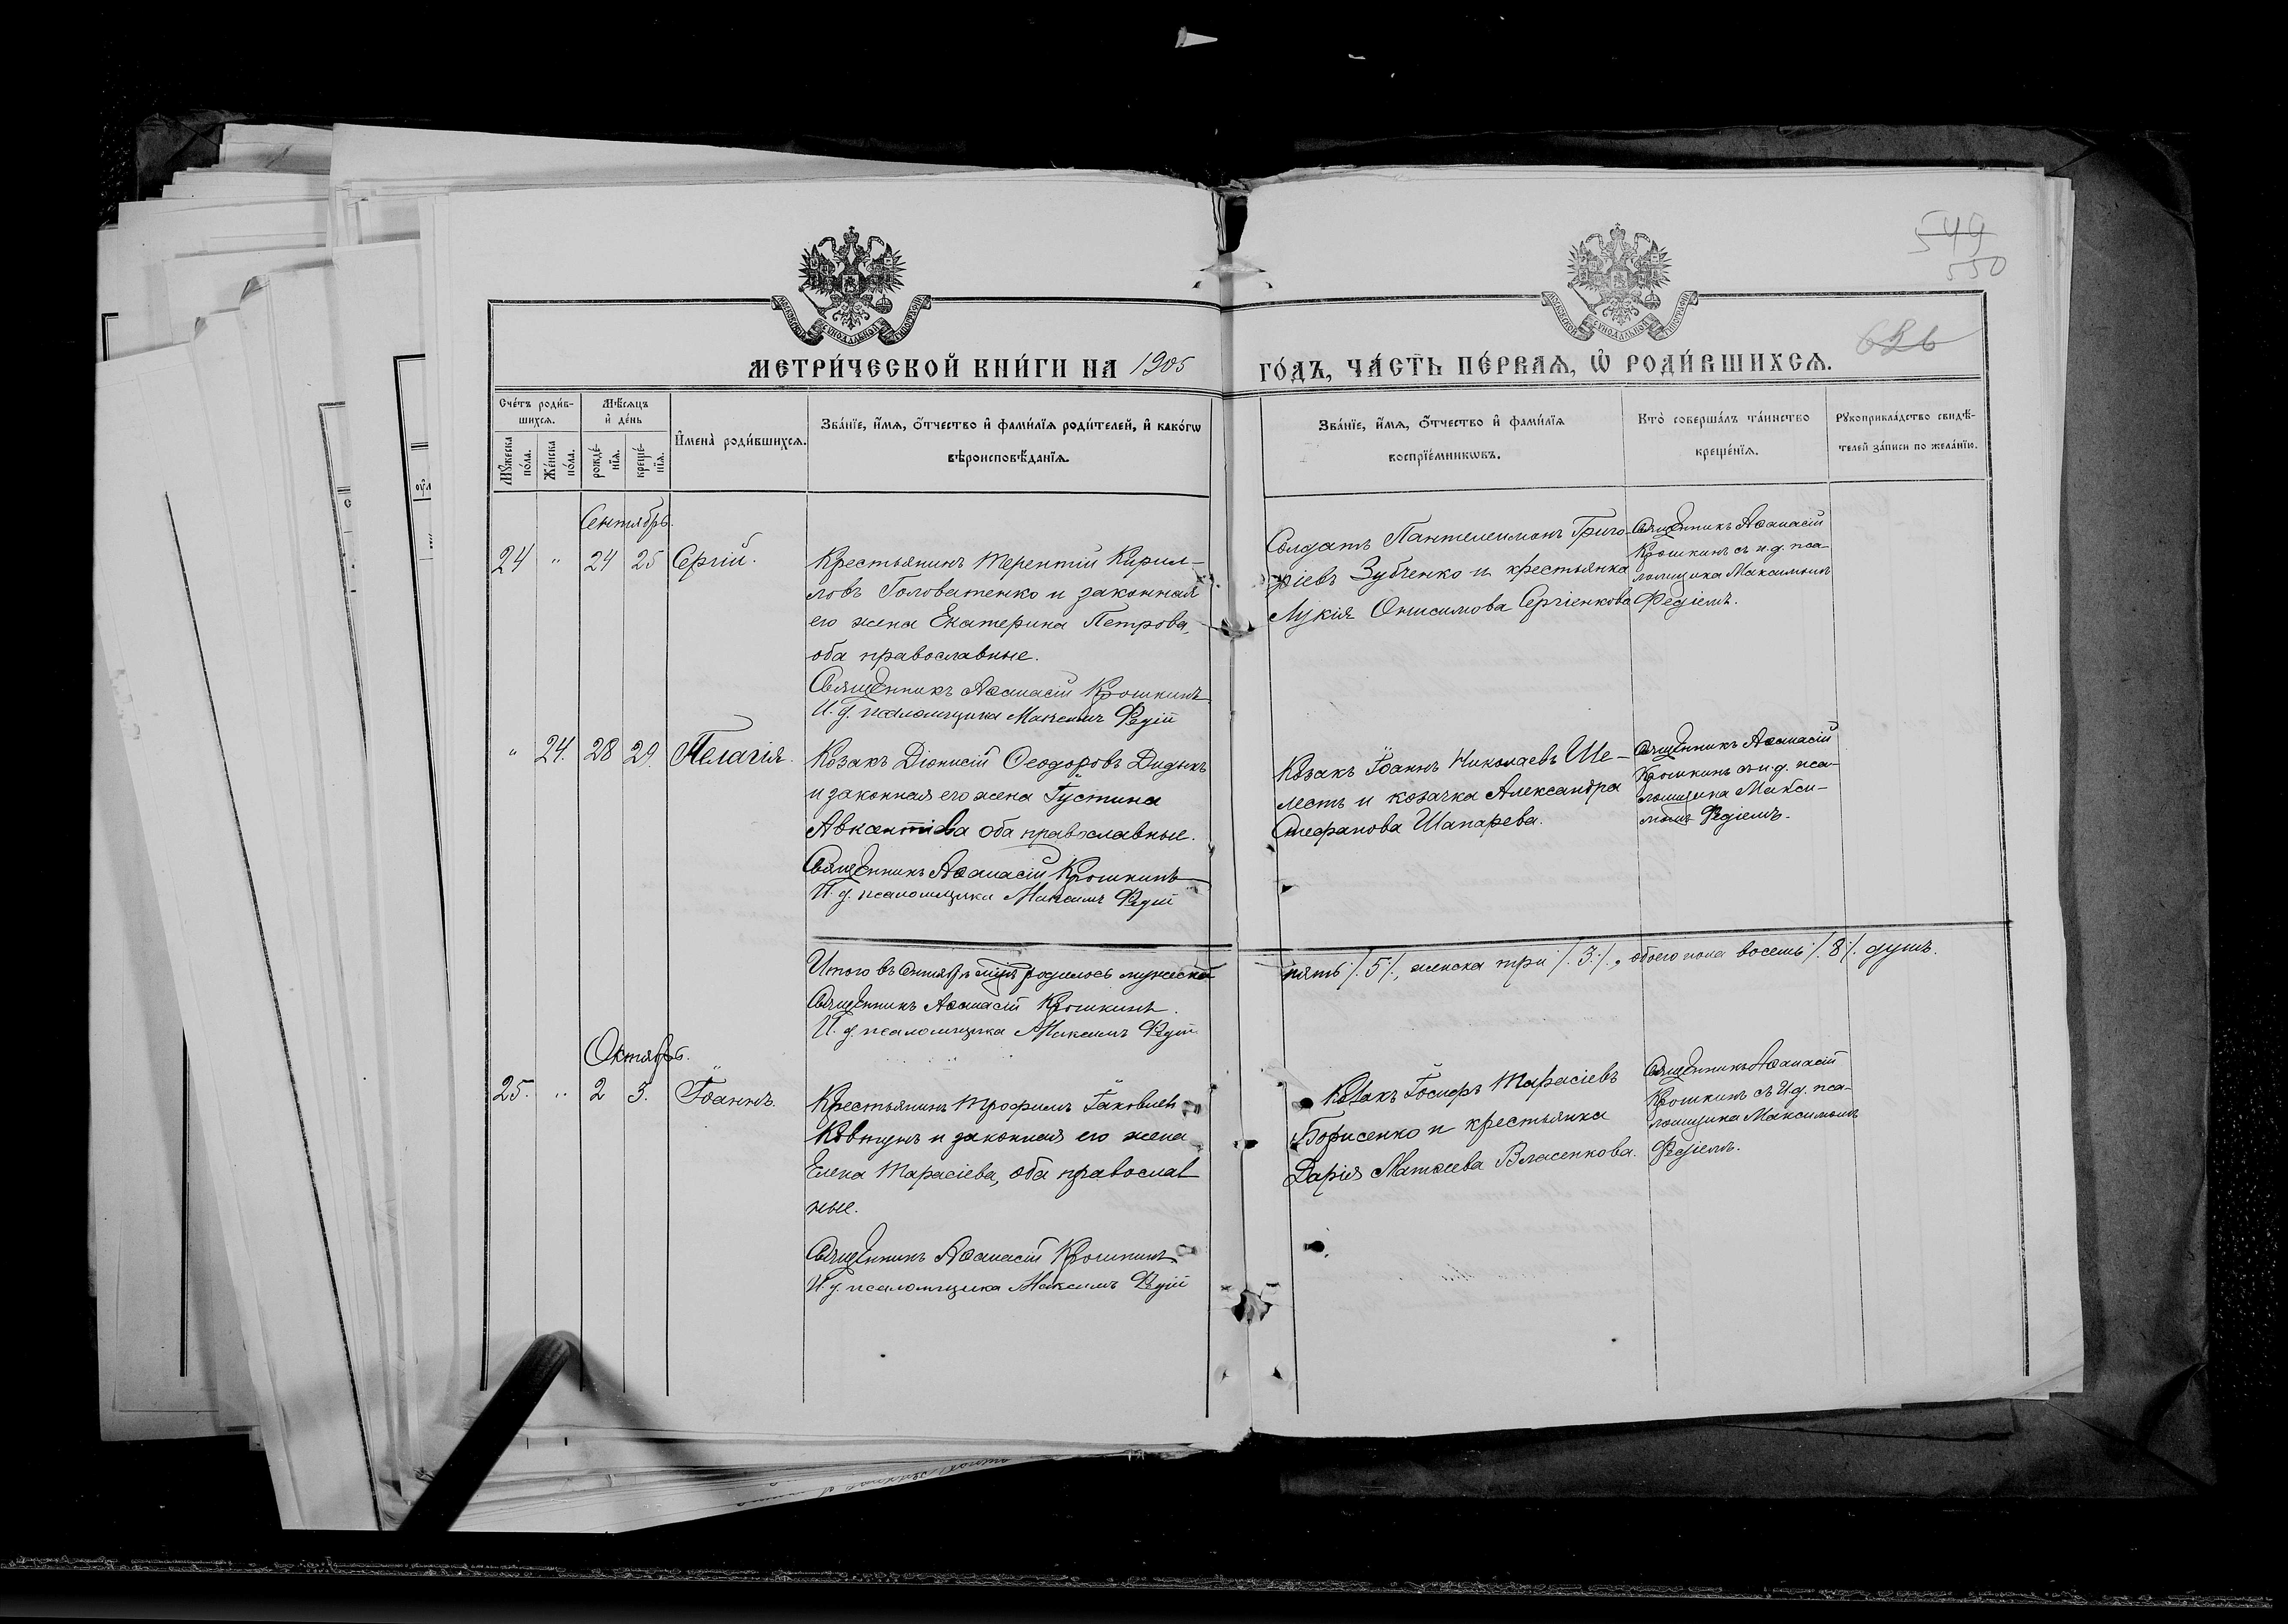 549
550
636
МОСКОВСКОЙ СѴНОДАЛЬНОЙ ТИПОГРАФІИ
МОСКОВСКОЙ СѴНОДАЛЬНОЙ ТИПОГРАФІИ
МЕТРИ́ЧЕСКОЙ КНИ́ГИ НА 1905
ГО́ДЪ, ЧА́СТЬ ПЕ́РВАѦ, Ѽ РОДИ́ВШИХСѦ.
Сче́тъ роди́в-
шихсѧ.
Мꙋ́жеска
по́ла.
Же́нска
по́ла.
Мѣ́сѧцъ
и҆ де́нь
рожде́-
нїѧ.
креще́-
нїѧ.
И҆мена̀ роди́вшихсѧ.
Зва́нїе, и҆́мѧ, ѻ҆́тчество и҆ фами́лїѧ роди́телей, и҆ како́гѡ
вѣроисповѣ́данїѧ.
Зва́нїе, и҆́мѧ, ѻ҆́тчество и҆ фами́лїѧ
воспрїе́мникѡвъ.
Кто̀ соверша́лъ та́инство
креще́нїѧ.
Рꙋкоприкла́дство свидѣ́-
телей за́писи по жела́нїю.
Сентябрь.
24 " 24 25 Сергій.
Крестьянинъ Терентій Кирил-
ловъ Головатенко и законная
его жена Екатерина Петрова,
оба православные.
Священникъ Аѳанасій Крошкинъ
И. д. псаломщика Максимъ Федій
Солдатъ Пантелеимонъ Григо-
ріевъ Зубченко и крестьянка
Лукія Онисимова Сергіенкова
Священникъ Аѳанасій
Крошкинъ съ и. д. пса-
ломщика Максимомъ
Федіемъ.
" 24. 28 29. Пелагія.
Козакъ Діонисій Ѳеодоровъ Дидыкъ
и законная его жена Іустина
Авксентіева оба православные.
Священникъ Аѳанасій Крошкинъ
И. д. псаломщика Максимъ Федій
Козакъ Іоаннъ Николаевъ Ше-
лестъ и козачка Александра
Стефанова Шапарева.
Священникъ Аѳанасій
Крошкинъ съ и. д. пса-
ломщика Макси-
момъ Федіемъ.
Итого въ Сентябрѣ мцѣ родилось мужеска
пять /.5/., женска три /.3./., обоего пола восемь /.8/. душъ.
Священникъ Аѳанасій Крошкинъ.
И. д. псаломщика Максимъ Федій.
Октябрь.
25. " 2 3. Іоаннъ.
Крестьянинъ Трофимъ Іаковлевъ
Ковтунъ и законная его жена
Елена Тарасіева, оба православ
ные.
Священникъ Аѳанасій Крошкинъ
И. д. псаломщика Максимъ Федій
Козакъ Іосифъ Тарасіевъ
Борисенко и крестьянка
Дарія Матѳеева Власенкова.
Священникъ Аѳанасій
Крошкинъ съ И. д. пса-
ломщика Максимомъ
Федіемъ.